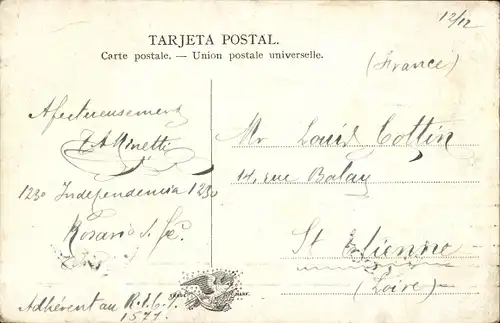 12/12
TARJETA POSTAL.
Carte postale. — Union postale universelle.
(France)
Afectueusement
Minetti
1230 Independencia 1230
Rosario S. Fé
Adhérent au R.I.C.
1571.
Mr Louis Cottin
14, rue Balay
St Etienne
(Loire)